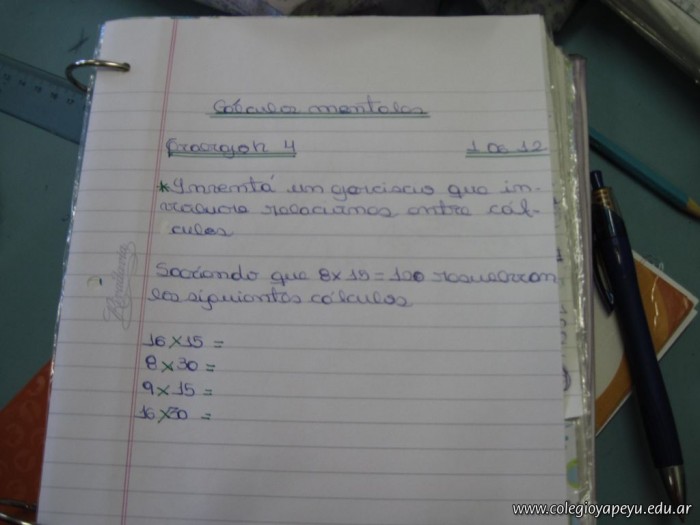 Cálculos mentales
1 de 12
* Inventá un ejercicio que in-
volucre relaciones entre cál-
culos
Sabiendo que 8x15=120 resuelvan
los siguientes cálculos
16x15=
8x30=
9x15=
16x30=
www.colegioyapeyu.edu.ar